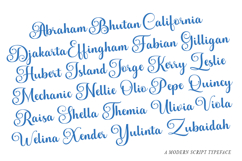 Abraham Bhutan California
Djakarta Effingham Fabian Gilligan
Hubert Island Jorge Kerry Leslie
Mechanic Nellie Olio Pepe Quincy
Raisa Shella Themia Ulivia Viola
Welina Xender Yulinta Zubaidah
A MODERN SCRIPT TYPEFACE